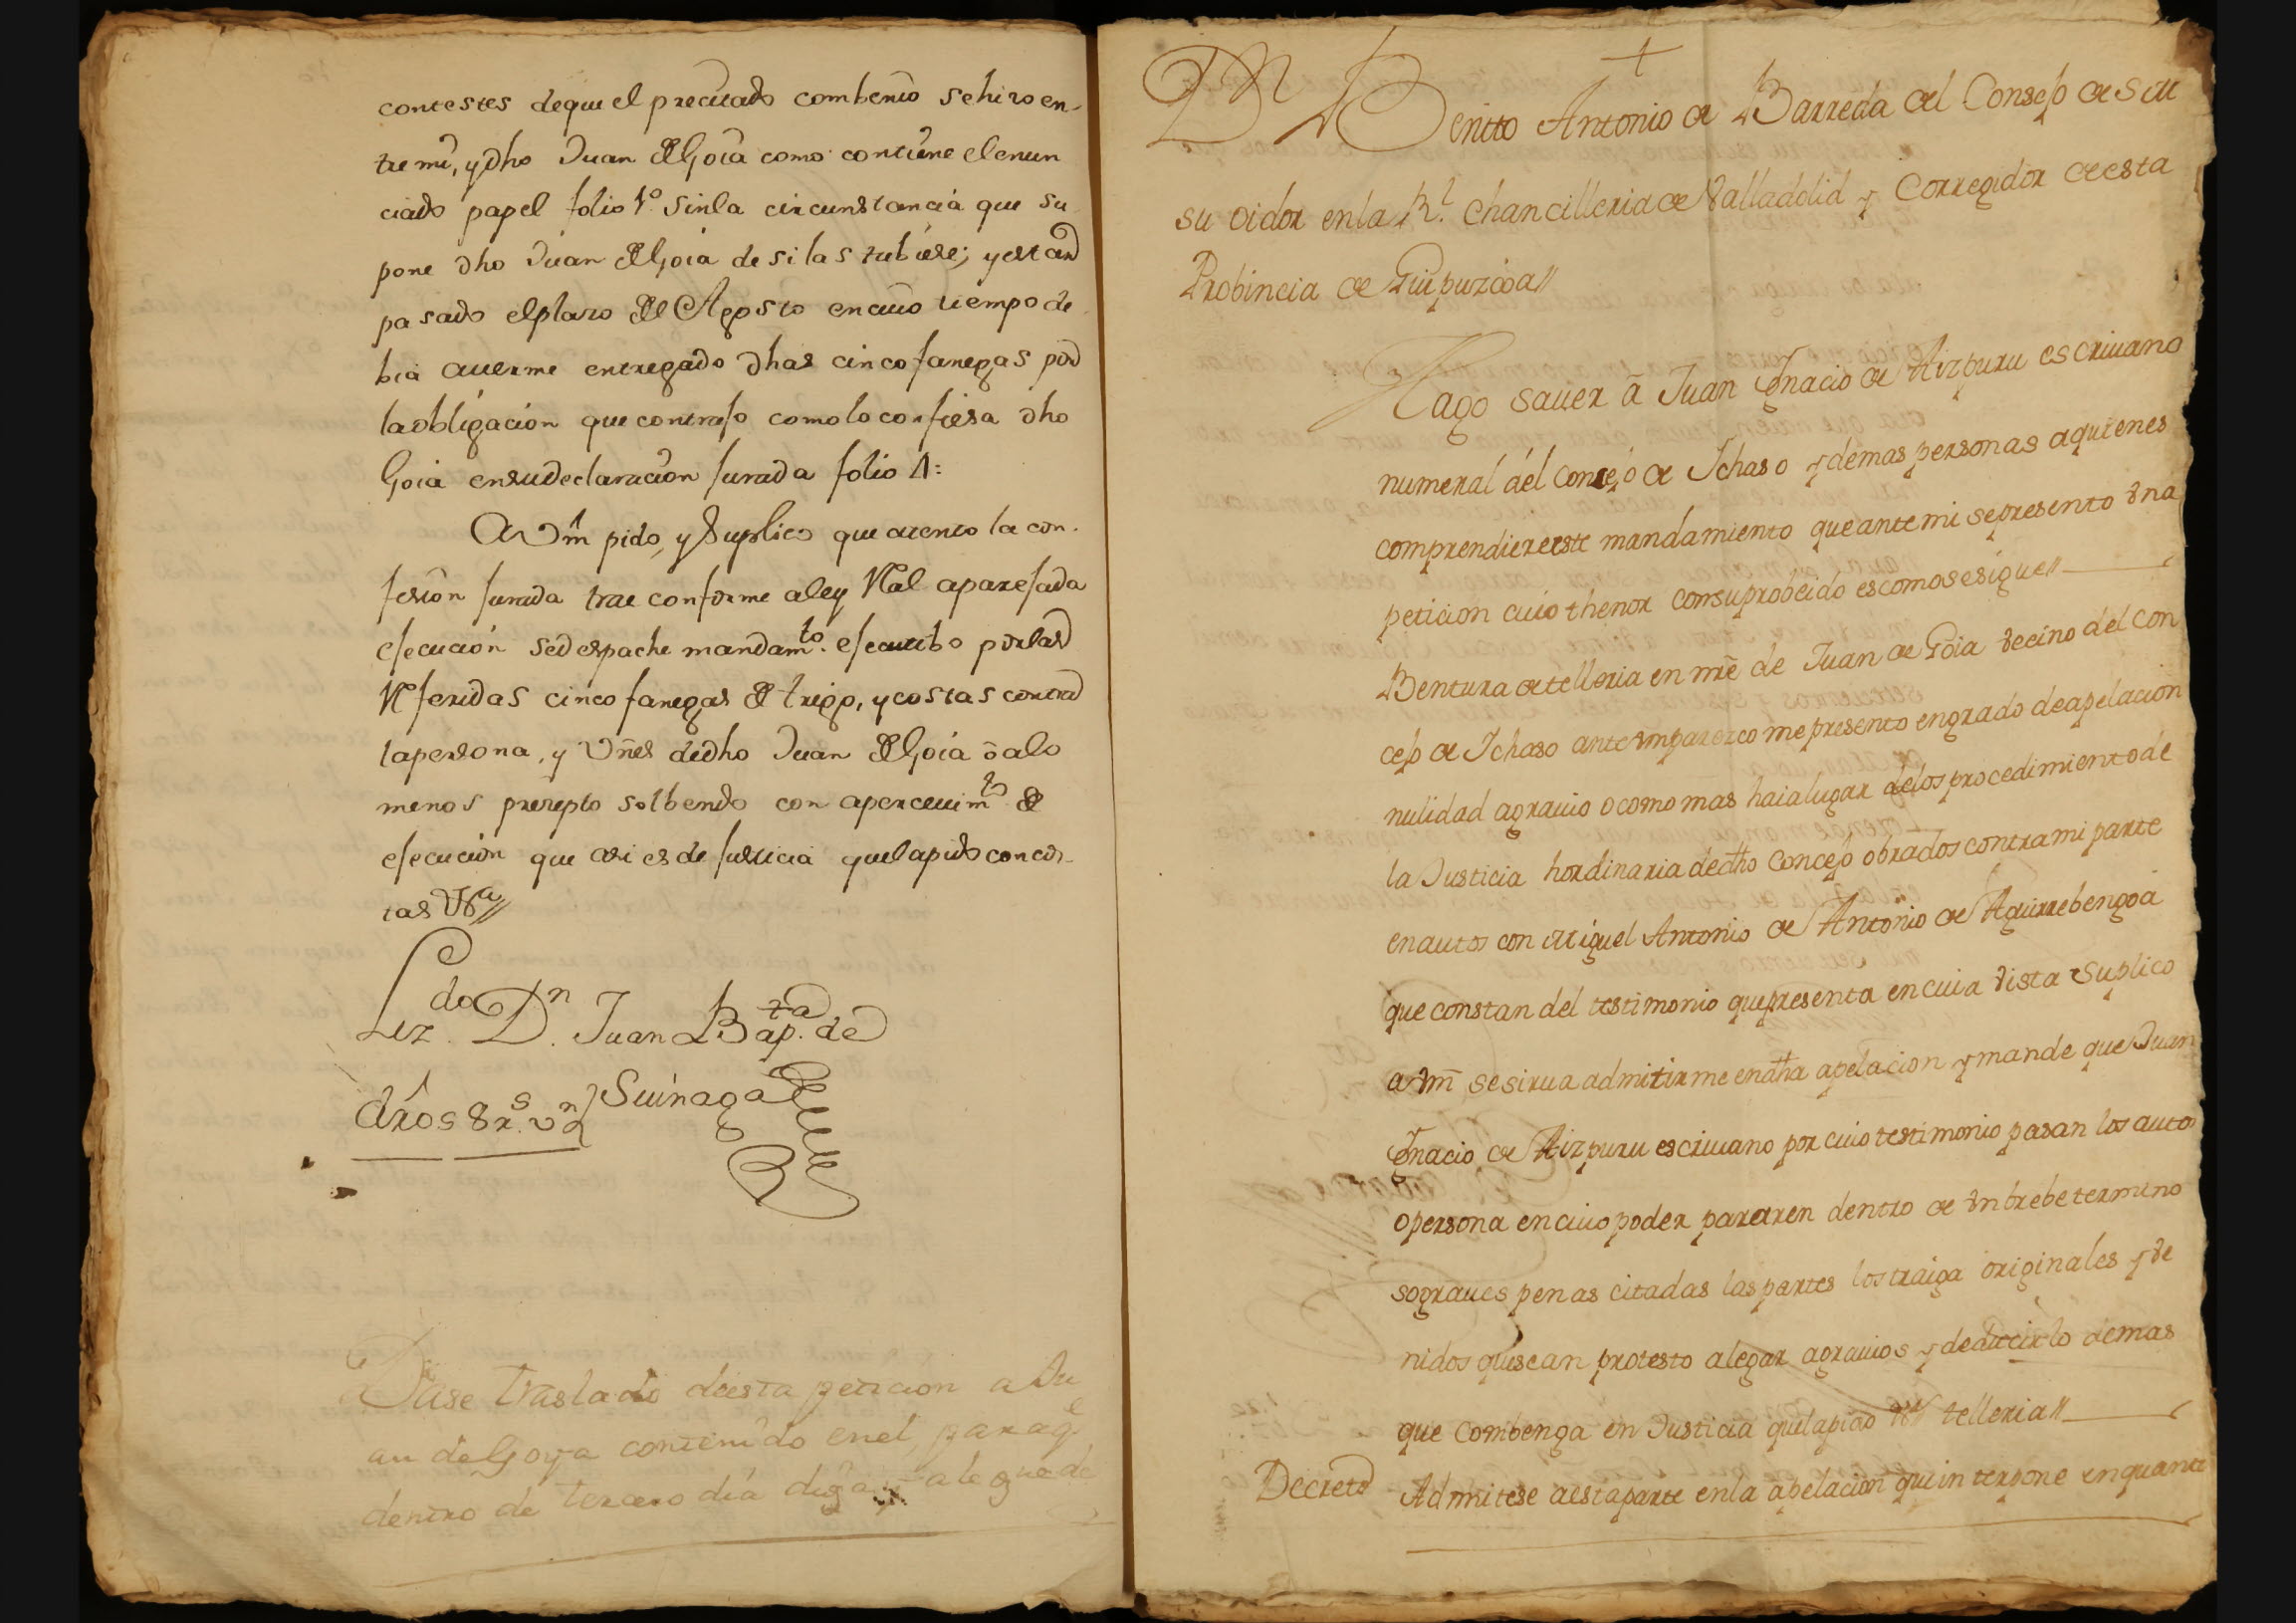 contestes de que el precitado combenio se hizo en-
tre mi, y dho Juan de Goia como contiene el enun
ciado papel folio 1º. sin la circunstancia que su
pone dho Juan de Goia de si las tubiese; y estand
pasado el plazo de Agosto en cuio tiempo de
bia auerme entregado dhas cinco fanegas por
la obligacion que contrajo como lo confiesa dho
Goia en su declaracion jurada folio 1:
A Vm pido, y suplico que atento la con-
fesion jurada trae conforme a ley Real aparejada
ejecucion se despache mandamto. ejecutibo por las
Referidas cinco fanegas de trigo, y costas contra
la persona, y Vnes de dho Juan de Goia o a lo
menos precepto solbendo con aperceuimto de
ejecucion que asi es de justicia que la pido con cos-
tas Vªa//
Lizdo. Dn. Juan Bapta. de
Suinaga
dros 8 rs. vn
Dase traslado de esta peticion a Ju
an de Goya contenido en el, para qe
dentro de tercero dia diga y alegue de
Dn Benito Antonio de Barreda del Consejo de S M
su oidor en la Rl. Chancilleria de Valladolid y Corregidor de esta
Probincia de Guipuzcoa//
Hago sauer a Juan Ignacio de Aizpuru escriuano
numeral del Concejo de Ichaso y demas personas a quienes
comprendiere este mandamiento que ante mi se presento vna
peticion cuio thenor con su probeido es como se sigue//
Bentura de telleria en nre de Juan de Goia vecino del con
cejo de Ichaso ante vm parezco me presento en grado de apelacion
nulidad agrauio o como mas haia lugar de los procedimientos de
la Justicia hordinaria de dho Concejo obrados contra mi parte
en autos con Miguel Antonio de Antonio de Aguirrebengoa
que constan del testimonio que presenta en cuia vista suplico
a vm se sirua admitirme en dha apelacion y mande que Juan
Ignacio de Aizpuru escriuano por cuio testimonio pasan los autos
o persona en cuio poder pararen dentro de vn brebe termino
so graues penas citadas las partes los traiga originales y ve
nidos que sean protesto alegar agrauios y deducir lo demas
que combenga en Justicia que la pido Vª telleria//
Decreto Admitese a esta parte en la apelacion que interpone en quanto